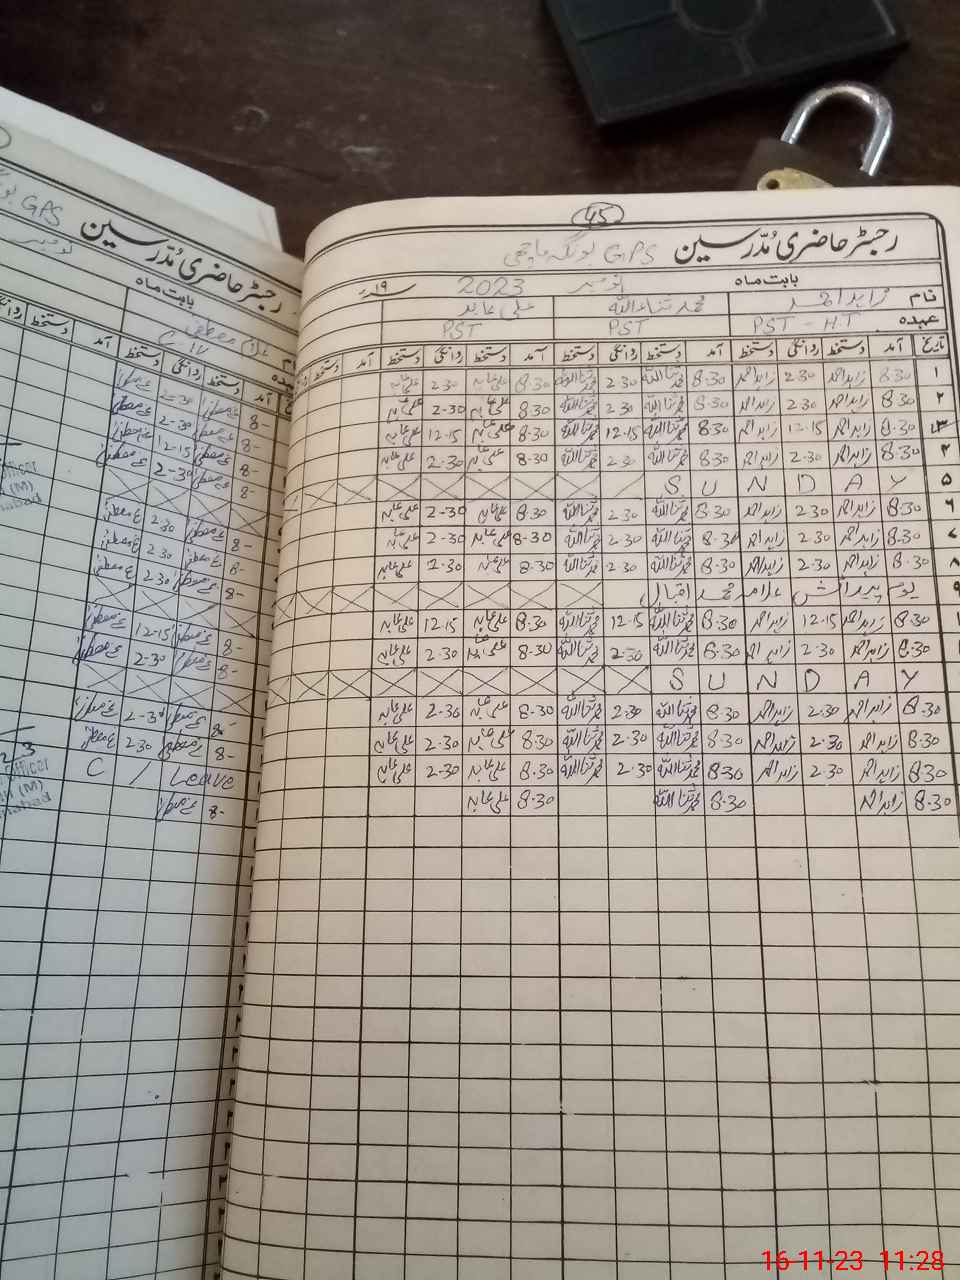 45
رجسٹر حاضری مُدّرسین GPS بونگہ ماچھی
بابت ماہ نومبر 2023 ۱۹ء
نام زاہد احمد محمد ثناءاللہ علی عابد
عہدہ PST - H.T PST PST
تاریخ آمد دستخط روانگی دستخط آمد دستخط روانگی دستخط آمد دستخط روانگی دستخط آمد دستخط
۱ 8.30 زاہد احمد 2.30 زاہد احمد 8.30 محمد ثناءاللہ 2.30 محمد ثناءاللہ 8.30 علی عابد 2.30 علی عابد
۲ 8.30 زاہد احمد 2.30 زاہد احمد 8.30 محمد ثناءاللہ 2.30 محمد ثناءاللہ 8.30 علی عابد 2-30 علی عابد
۳ 8.30 زاہد احمد 12.15 زاہد احمد 8.30 محمد ثناءاللہ 12.15 محمد ثناءاللہ 8.30 علی عابد 12-15 علی عابد
۴ 8.30 زاہد احمد 2.30 زاہد احمد 8.30 محمد ثناءاللہ 2.30 محمد ثناءاللہ 8.30 علی عابد 2.30 علی عابد
۵ SUNDAY
۶ 8.30 زاہد احمد 2.30 زاہد احمد 8.30 محمد ثناءاللہ 2.30 محمد ثناءاللہ 8.30 علی عابد 2-30 علی عابد
۷ 8.30 زاہد احمد 2.30 زاہد احمد 8.30 محمد ثناءاللہ 2.30 محمد ثناءاللہ 8-30 علی عابد 2-30 علی عابد
۸ 8.30 زاہد احمد 2.30 زاہد احمد 8.30 محمد ثناءاللہ 2.30 محمد ثناءاللہ 8.30 علی عابد 2.30 علی عابد
۹ یوم پیدائش علامہ محمد اقبال
8.30 زاہد احمد 12.15 زاہد احمد 8.30 محمد ثناءاللہ 12.15 محمد ثناءاللہ 8.30 علی عابد 12.15 علی عابد
8.30 زاہد احمد 2.30 زاہد احمد 8.30 محمد ثناءاللہ 2.30 محمد ثناءاللہ 8.30 علی عابد 2.30 علی عابد
SUNDAY
8.30 زاہد احمد 2.30 زاہد احمد 8.30 محمد ثناءاللہ 2.30 محمد ثناءاللہ 8.30 علی عابد 2.30 علی عابد
8.30 زاہد احمد 2.30 زاہد احمد 8.30 محمد ثناءاللہ 2.30 محمد ثناءاللہ 8.30 علی عابد 2.30 علی عابد
8.30 زاہد احمد 2.30 زاہد احمد 8.30 محمد ثناءاللہ 2.30 محمد ثناءاللہ 8.30 علی عابد 2.30 علی عابد
8.30 زاہد احمد 8.30 محمد ثناءاللہ 8.30 علی عابد
رجسٹر حاضری مُدّرسین GPS
بابت ماہ نومبر
غلام مصطفیٰ
آمد دستخط روانگی دستخط آمد دستخط
8- 2-30
8- 2-30
8- 12-15
8- 2-30
8- 2.30
8- 2.30
8- 2.30
8- 12-15
8- 2-30
8- 2-30
8- 2.30
C / Leave
8-
Officer
(M)
16-11-23 11:28